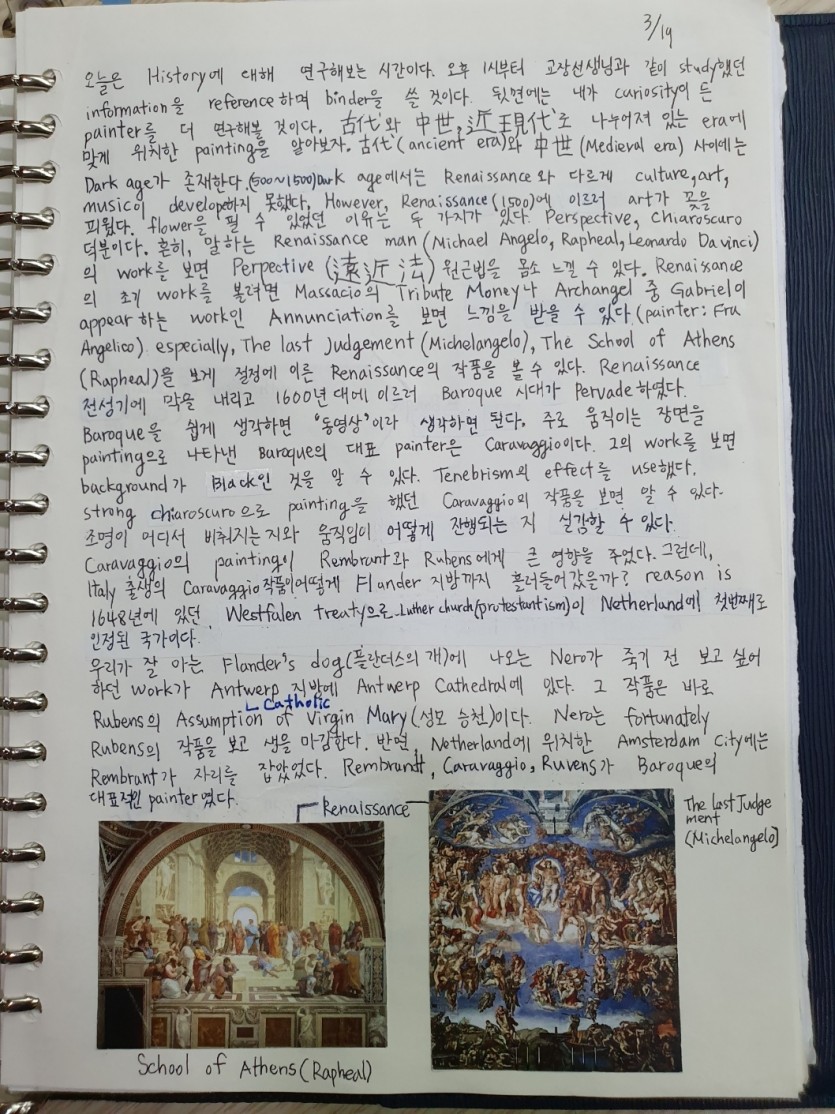 3/19
오늘은 History에 대해 연구해보는 시간이다. 오후 1시부터 교장선생님과 같이 study했던
information을 reference하며 binder을 쓸 것이다. 뒷면에는 내가 curiosity이 든
painter를 더 연구해볼 것이다. 古代와 中世, 近現代로 나누어져 있는 era에
맞게 위치한 painting을 알아보자. 古代(ancient era)와 中世(Medieval era) 사이에는
Dark age가 존재한다.(500~1500)Dark age에서는 Renaissance와 다르게 culture, art,
music이 develop하지 못했다. However, Renaissance(1500)에 이르러 art가 꽃을
피웠다. flower을 필 수 있었던 이유는 두 가지가 있다. Perspective, Chiaroscuro
덕분이다. 흔히, 말하는 Renaissance man(Michael Angelo, Rapheal, Leonardo Da vinci)
의 work를 보면 Perpective(遠近法) 원근법을 몸소 느낄 수 있다. Renaissance
의 초기 work를 볼려면 Massacio의 Tribute Money나 Archangel 중 Gabriel이
appear하는 work인 Annunciation를 보면 느낌을 받을 수 있다.(painter: Fra
Angelico) especially, The last Judgement(Michelangelo), The School of Athens
(Rapheal)을 보게 절정에 이른 Renaissance의 작품을 볼 수 있다. Renaissance
전성기에 막을 내리고 1600년대에 이르러 Baroque 시대가 Pervade하였다.
Baroque을 쉽게 생각하면 '동영상'이라 생각하면 된다. 주로 움직이는 장면을
painting으로 나타낸 Baroque의 대표 painter은 Caravaggio이다. 그의 work를 보면
background가 Black인 것을 알 수 있다. Tenebrism의 effect를 use했다.
strong chiaroscuro으로 painting을 했던 Caravaggio의 작품을 보면 알 수 있다.
조명이 어디서 비춰지는지와 움직임이 어떻게 진행되는 지 실감할 수 있다.
Caravaggio의 painting이 Rembrant과 Rubens에게 큰 영향을 주었다. 그런데,
Italy 출생의 Caravaggio작품이 어떻게 Flander 지방까지 흘러들어갔을까? reason is
1648년에 있던 Westfalen treaty으로 Luther church(protestantism)이 Netherland에 첫번째로
인정된 국가이다.
우리가 잘 아는 Flander's dog(플란더스의 개)에 나오는 Nero가 죽기 전 보고 싶어
하던 work가 Antwerp 지방에 Antwerp Cathedral에 있다. 그 작품은 바로
Catholic
Rubens의 Assumption of Virgin Mary(성모 승천)이다. Nero는 fortunately
Rubens의 작품을 보고 생을 마감한다. 반면, Netherland에 위치한 Amsterdam City에는
Rembrant가 자리를 잡았었다. Rembrandt, Caravaggio, Ruvens가 Baroque의
대표적인 painter였다.
Renaissance
The last Judge
ment
(Michelangelo)
School of Athens(Rapheal)